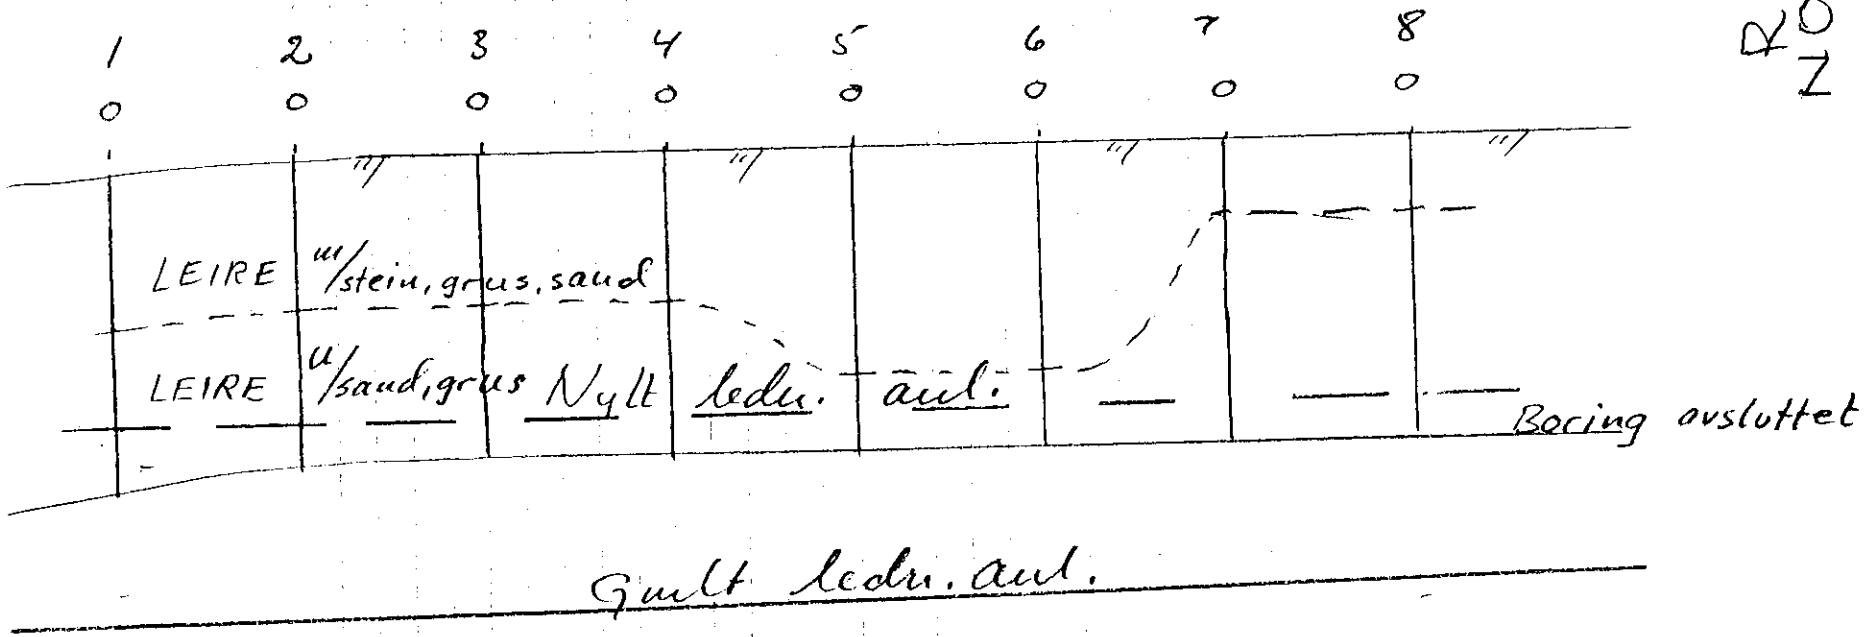 1 2 3 4 5 6 7 8
0 0 0 0 0 0 0 0
LEIRE m/stein, grus, sand
LEIRE u/sand, grus Nytt ledn. anl.
Boring avsluttet
Gmlt ledn. anl.